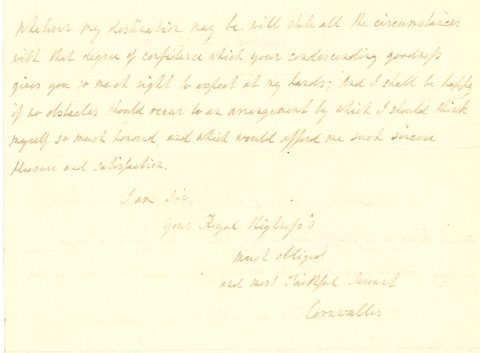 Whatever my destination may be, will state all the circumstances
with that degree of confidence which your condescending goodness
gives you so much right to expect at my hands; And I shall be happy
if no obstacles should occur to an arrangement by which I should think
myself so much honored, and which would afford me such sincere
pleasure and satisfaction.
I am Sir,
Your Royal Highness's
most obliged
and most Faithful Servant
Cornwallis